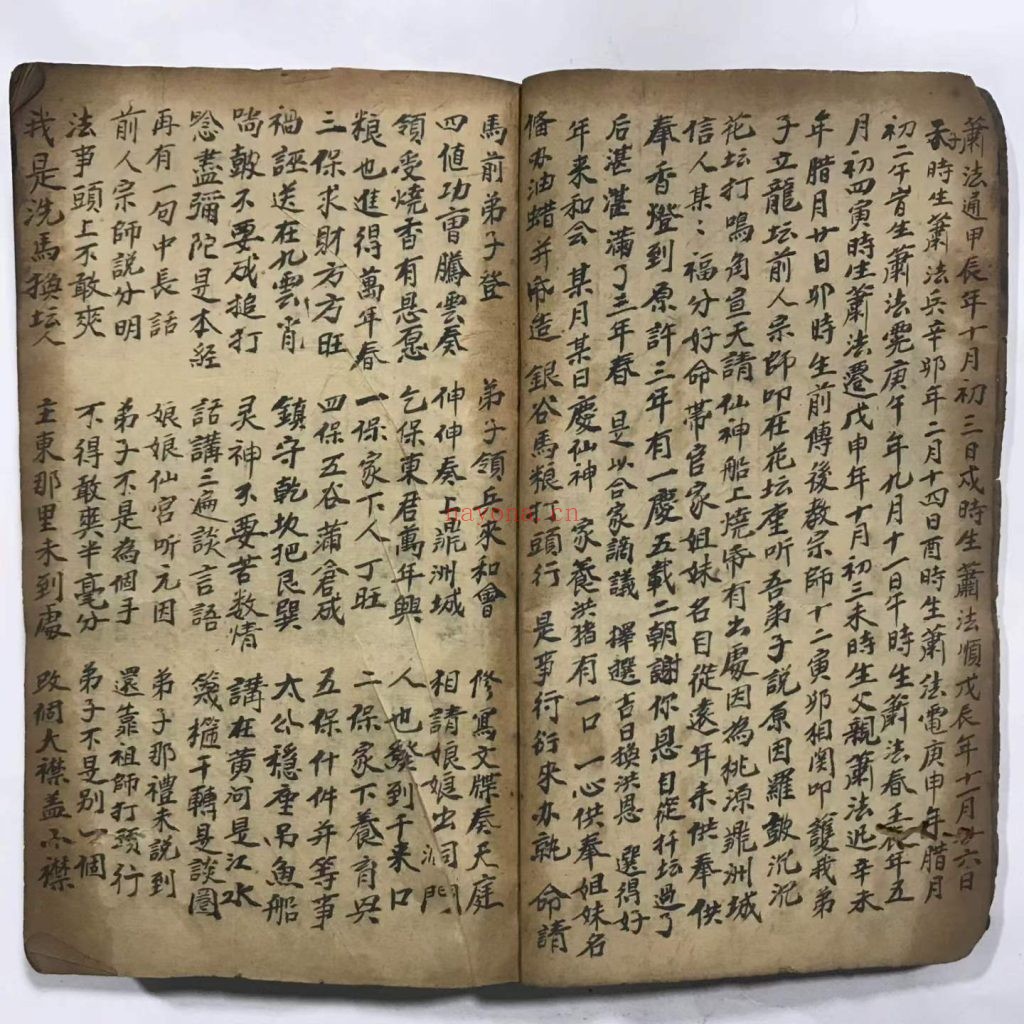 蕭法通甲辰年十月初三日戌時生蕭法順戊辰年十一月廿六日
子時生蕭法兵辛卯年二月十四日酉時生蕭法電庚申年腊月
初二午首生蕭法灵庚午年九月十一日午時生蕭法春壬辰年五
月初四寅時生蕭法遷戊申年十月初三未時生父親蕭法迅辛未
年腊月廿日卯時生前傳後教宗師十二寅卯相関叩護我弟
子立龍坛前人宗師叩在花坛座听吾弟子説原因羅皷沉沉
花坛打鳴角宣天請仙神船上燒香有出處因為桃源鼎洲城
信人某：福分好命帶官家姐妹名目從遠年未供奉供
奉香燈到原許三年有一慶五載二朝謝你恩自從扦坛過了
后湛湛滿了三年春 是以合家謫議 擇選吉日換洪恩 選得好
年来和会 某月某日慶仙神 家養洪猪有一口 一心供奉姐妹名
俻办油蠟并帋造 銀谷馬粮打頭行 是事行行來办就 命請
馬前弟子登 弟子領兵來和會 修寫文牒奏天庭
四值功曹騰雲奏 伸伸奏上鼎洲城 相請娘娘出洞門
領受燒香有恩愿 乞保東君萬年興 人也發到千来口
粮也進得萬年春 一保家下人丁旺 二保家下養育吳
三保求財方方旺 四保五谷蒲倉成 五保什件并等事
禍誣送在九雲肖 鎮守乾坎把艮巽 太公穩座吊魚船
啃皷不要咸搥打 灵神不要苦数情 講在黄河是江水
唸盡彌陀是本经 話講三遍談言語 篾擂千轉是談圖
再有一句中長話 娘娘仙宫听元因 弟子那禮未說到
前人宗師説分明 弟子不是為個手 還靠祖師打頭行
法事頭上不敢爽 不得敢爽半毫分 弟子不是别一個
我是洗馬換坛人 主東那里未到處 改個大襟盖小襟
hayone.cn